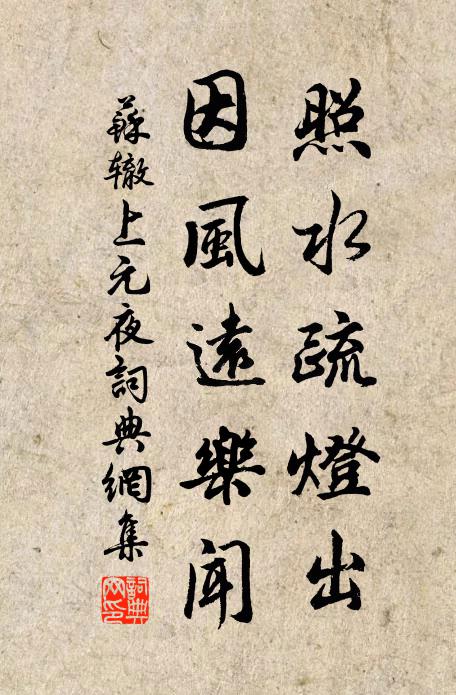 照水疏燈出
因風遠樂聞
蘇辙上元夜詞典網集
詞典
网印